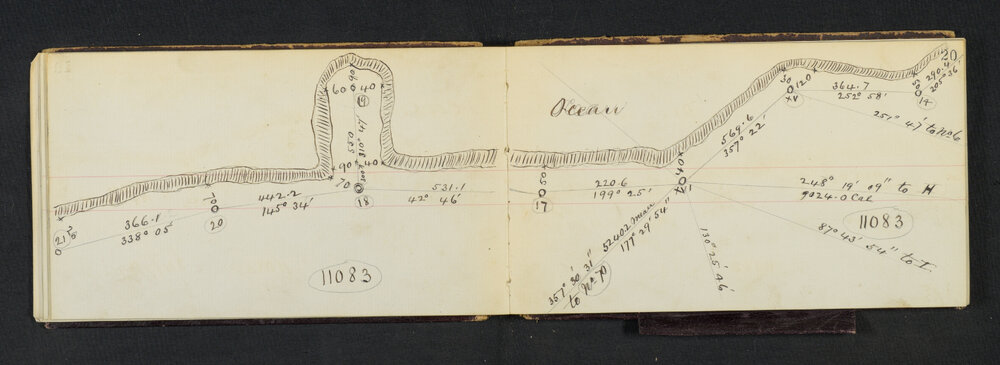 20
90
60
40
19
550
310° 47'
90
40
70
18
531.1
42° 46'
442.2
145° 34'
20
366.1
338° 05'
21
11083
Ocean
50
17
220.6
199° 25'
40
569.6
357° 22'
50
120
XV
364.7
252° 58'
50
14
290.4
205° 36'
251° 47' to No 6
248° 19' 09" to H
9024.0 Cal
11083
87° 43' 54" to I
130° 25' 46"
5240.2 mean
177° 29' 54"
357° 30' 31"
to No P